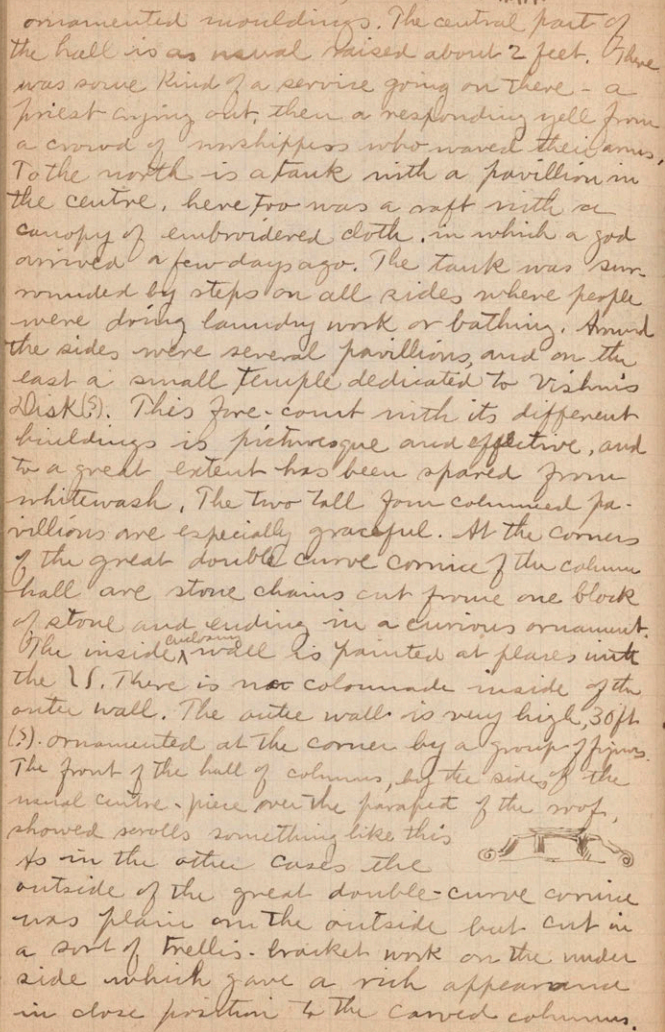 ornamented mouldings. The central part of
the hall is as usual raised about 2 feet. There
was some kind of a service going on there - a
priest crying out, then a responding yell from
a crowd of worshippers who waved their arms.
To the north is a tank with a pavillion in
the centre, here too was a raft with a
canopy of embroidered cloth, in which a god
arrived a few days ago. The tank was sur-
rounded by steps on all sides where people
were doing laundry work or bathing. Around
the sides were several pavillions, and on the
east a small temple dedicated to Vishnis
Disk(?). This fore-court with its different
buildings is picturesque and effective, and
to a great extent has been spared from
whitewash. The two tall four columned pa-
villions are especially graceful. At the corners
of the great double curve cornice of the column
hall are stone chains cut frome one block
of stone and ending in a curious ornament.
The inside enclosing wall is painted at places with
the . There is no colonnade inside of the
outer wall. The outer wall is very high, 30 ft
(?). ornamented at the corner by a group of figures.
The front of the hall of columns, by the sides of the
usual centre-piece over the parapet of the roof,
showed scrolls something like this
As in the other cases the
outside of the great double-curve cornice
was plain on the outside but cut in
a sort of trellis-bracket work on the under
side which gave a rich appearance
in close position to the carved columns.